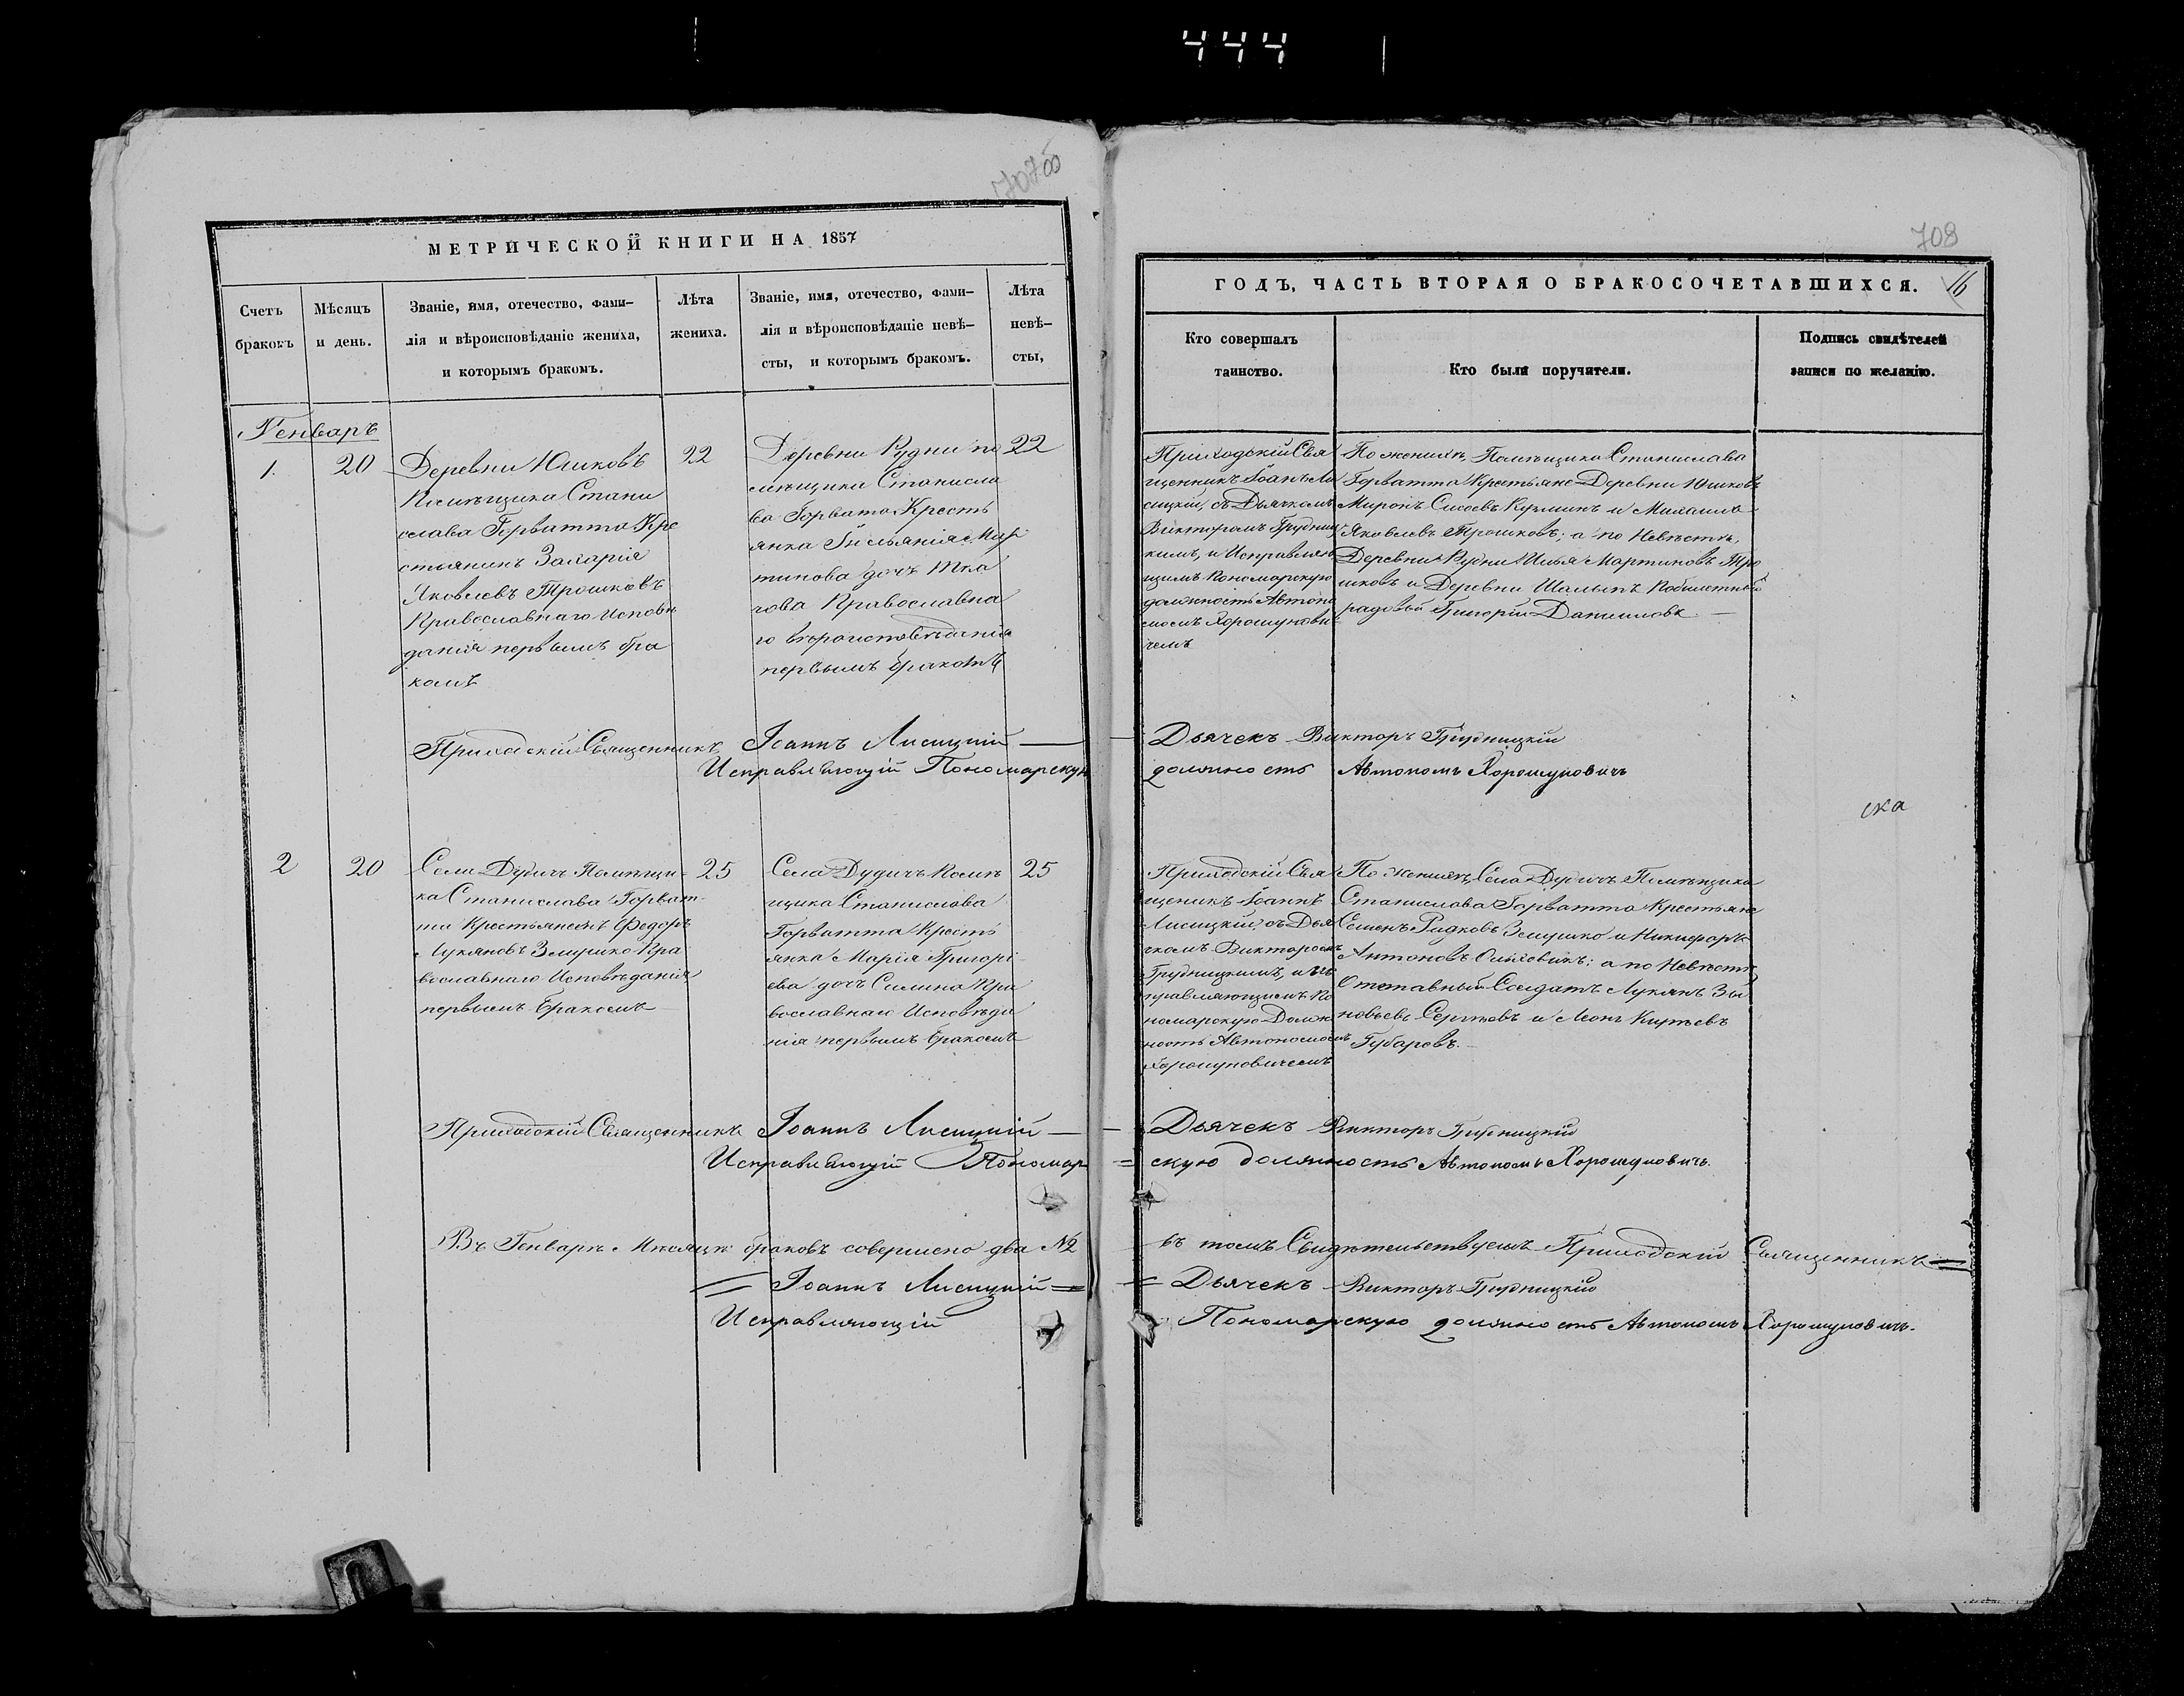 444
708
МЕТРИЧЕСКОЙ КНИГИ НА 1857
Счетъ браковъ
Мѣсяцъ и день.
Званіе, имя, отечество, фами-
лія и вѣроисповѣданіе жениха,
и которымъ бракомъ.
Лѣта
жениха.
Званіе, имя, отечество, фами-
лія и вѣроисповѣданіе невѣ-
сты, и которымъ бракомъ.
Лѣта
невѣ-
сты,
Генваръ
1.
20
Деревни Юшковъ
Помѣщика Стани
слава Горватта Кре
стьянинъ Захарія
Яковлевъ Трошковъ
Православнаго Исповѣ
данія первымъ бра
комъ
22
Деревни Рудни по
мѣщика Станисла
ва Горвата Кресть
янка
тинова дочь Тка
чова Православна
го вѣроисповѣданія
первымъ бракомъ
22
Приходскій Священникъ Іоаннъ Лисицкій
Исправляющій Пономарскую
2
20
Села Дудичъ Помѣщи-
ка Станислава Горват-
та Крестьянинъ Федоръ
Лукяновъ Змушко Пра
вославнаго Исповѣданія
первымъ бракомъ
25
Села Дудичъ Помѣ
щика Станислава
Горватта Кресть
янка Марія Григорі
ева дочь Силина Пра
вославнаго Исповѣда
нія первымъ бракомъ
25
Приходскій Священникъ Іоаннъ Лисицкій
Исправляющій Пономар
Въ Генварѣ Мѣсяцѣ браковъ совершено два №2
Іоаннъ Лисицкій
Исправляющій
ГОДЪ, ЧАСТЬ ВТОРАЯ О БРАКОСОЧЕТАВШИХСЯ.
16
Кто совершалъ
таинство.
Кто были поручители.
Подпись свидѣтелей
записи по желанію.
Приходскій Свя
щенникъ Іоаннъ Ли
сицкій, съ Дьячкомъ
Викторомъ Грудниц
кимъ, и Исправляю
щимъ Пономарскую
должность Автоно
момъ Хорошунови
чемъ
По женихѣ, Помѣщика Станислава
Горватта Крестьяне Деревни Юшковъ
Миронъ Кузминъ и Михаилъ
Яковлевъ Трошковъ: а по Невѣстѣ,
Деревни Рудни Илья Мартиновъ Тро
шковъ и Деревни
радовой Григорій Даниловъ.
Дьячекъ Викторъ Грудницкій
должность Автономъ Хорошуновичъ
ска
Приходскій Свя
щеникъ Іоаннъ
Лисицкій, съ Дья
чкомъ Викторомъ
Грудницкимъ, и Ис
правляющимъ По
номарскую Долж
ность Автономомъ
Хорошуновичемъ
По Женихѣ, Села Дудичъ Помѣщика
Станислава Горватта Крестьяне
Семенъ Радковъ Змушко и Никифоръ
Антоновъ: а по Невѣстѣ
Отставный Солдатъ Лукянъ Зи
новьевъ Сергѣевъ и Леонъ
Губаревъ.
Дьячекъ Викторъ Грудницкій
скую должность Автономъ Хорошуновичъ.
въ томъ Свидѣтельствуемъ Приходскій Священникъ
Дьячекъ Викторъ Грудницкій
Пономарскую должность Автономъ Хорошуновичъ.